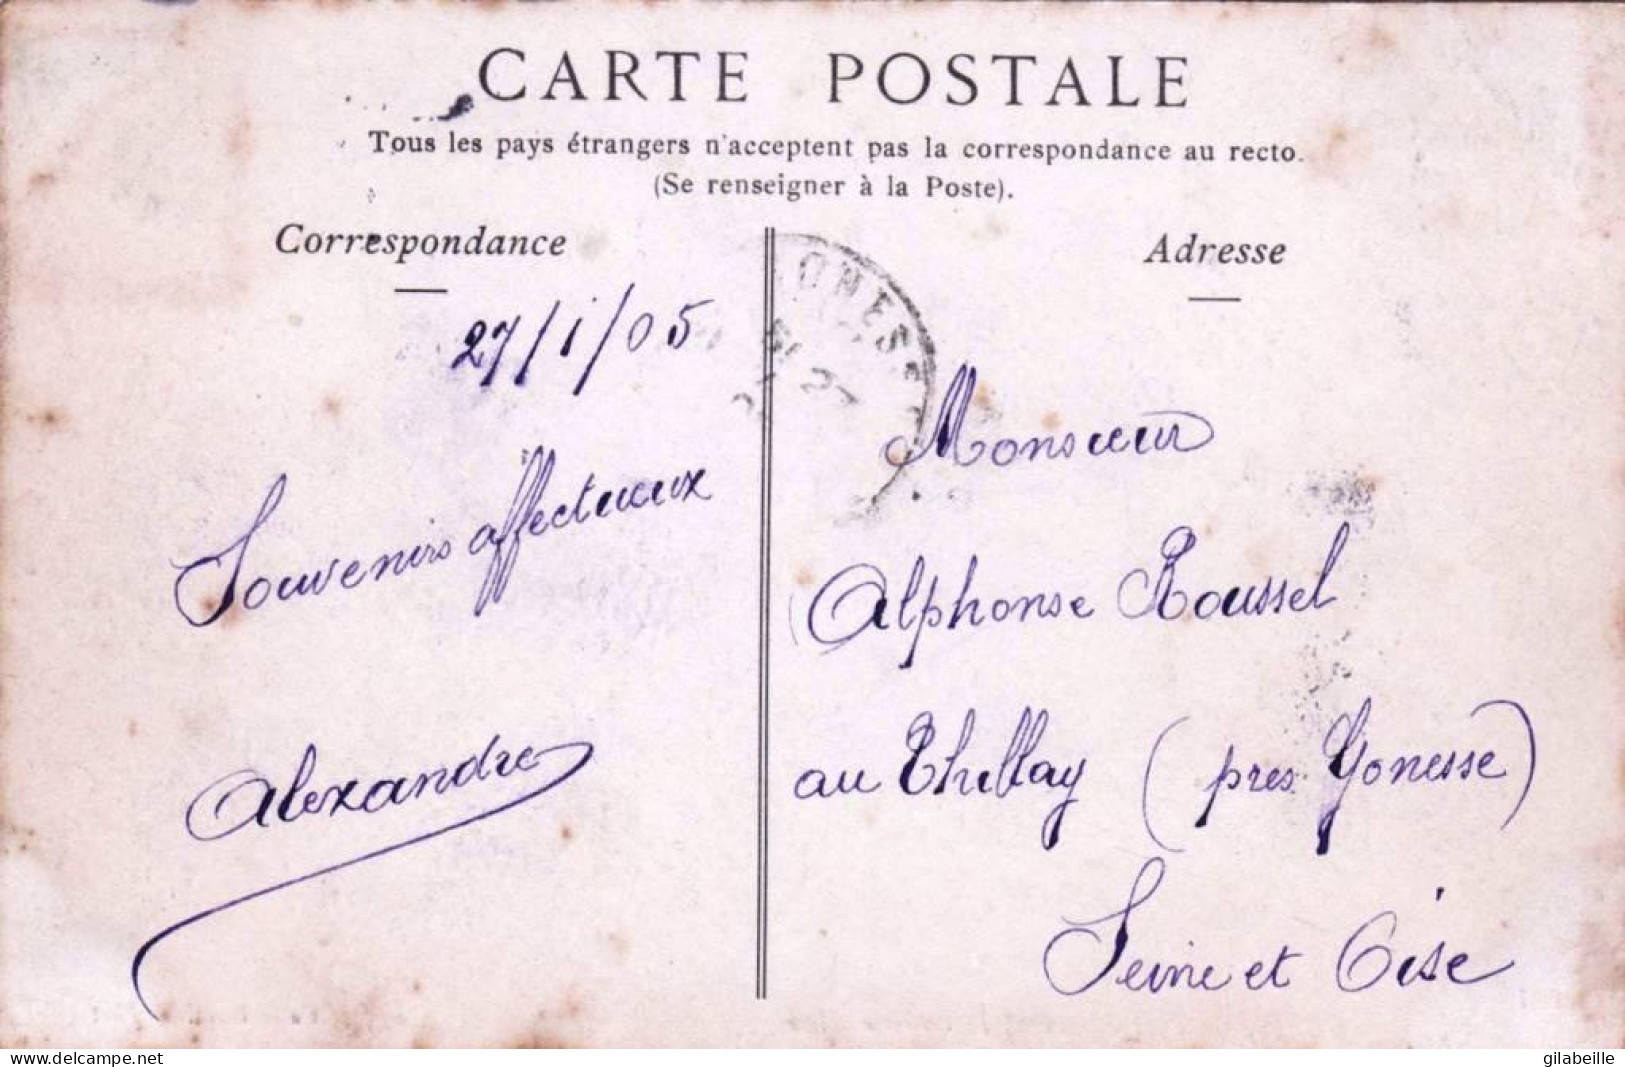 CARTE POSTALE
Tous les pays étrangers n'acceptent pas la correspondance au recto.
(Se renseigner à la Poste).
Correspondance
27/1/05
Souvenirs affectueux
Alexandre
Adresse
Monsieur
Alphonse Roussel
au Thillay (près Gonesse)
Seine et Oise
ONES
27
www.delcampe.net
gilabeille